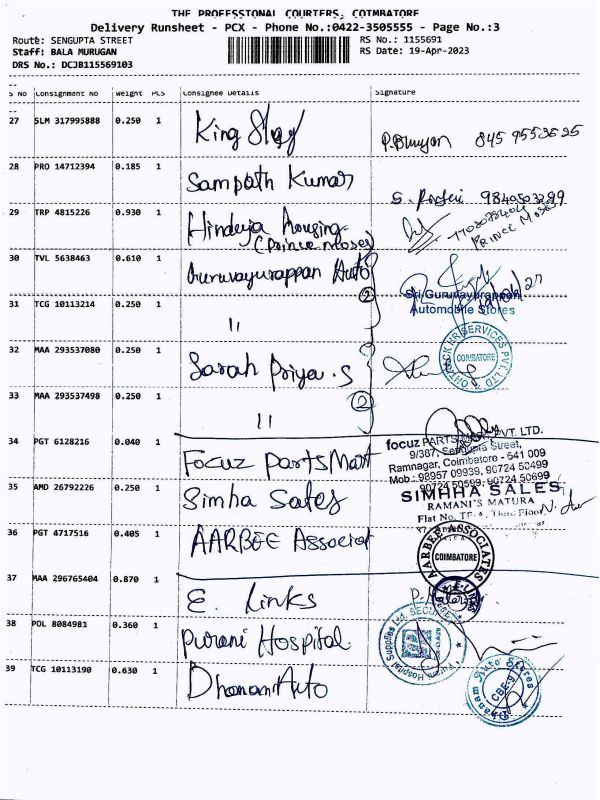 THE PROFESSIONAL COURIERS, COIMBATORE
Delivery Runsheet - PCX - Phone No.:0422-3505555 - Page No.:3
Route: SENGUPTA STREET
RS No.: 1155691
Staff: BALA MURUGAN
RS Date: 19-Apr-2023
DRS No.: DCJB115569103
S No Consignment No Weight PCS Consignee Details Signature
27 SLM 317995888 0.250 1 King
28 PRO 14712394 0.185 1 Sampath Kumar
29 TRP 4815226 0.930 1 Hinduja Housing
(Prince Moses)
PRINCE MOSES
30 TVL 5638463 0.610 1 Guruvayurappan Auto
2
Sri Guruvayurappan
Automobile Stores
31 TCG 10113214 0.250 1 "
32 MAA 293537080 0.250 1 Sarah Priya.S
COIMBATORE
33 MAA 293537498 0.250 1 "
2
34 PGT 6128216 0.040 1 Focuz Parts Mart
focuz PARTS MART PVT. LTD.
9/387, Sengupta Street,
Ramnagar, Coimbatore - 641 009
Mob : 98957 09939, 90724 50499
90724 50599, 90724 50699
35 AMD 26792226 0.250 1 Simha Sales
SIMHHA SALES
RAMANI'S MATURA
36 PGT 4717516 0.405 1 AARBEE Associat
AARBEE ASSOCIATES
COIMBATORE
37 MAA 296765404 0.870 1 E. Links
38 POL 8084981 0.360 1 Purani Hospital
Purani Hospital Supplies Ltd.
39 TCG 10113190 0.630 1 Dhanam Auto
Dhanam Auto Stores
CBE-9